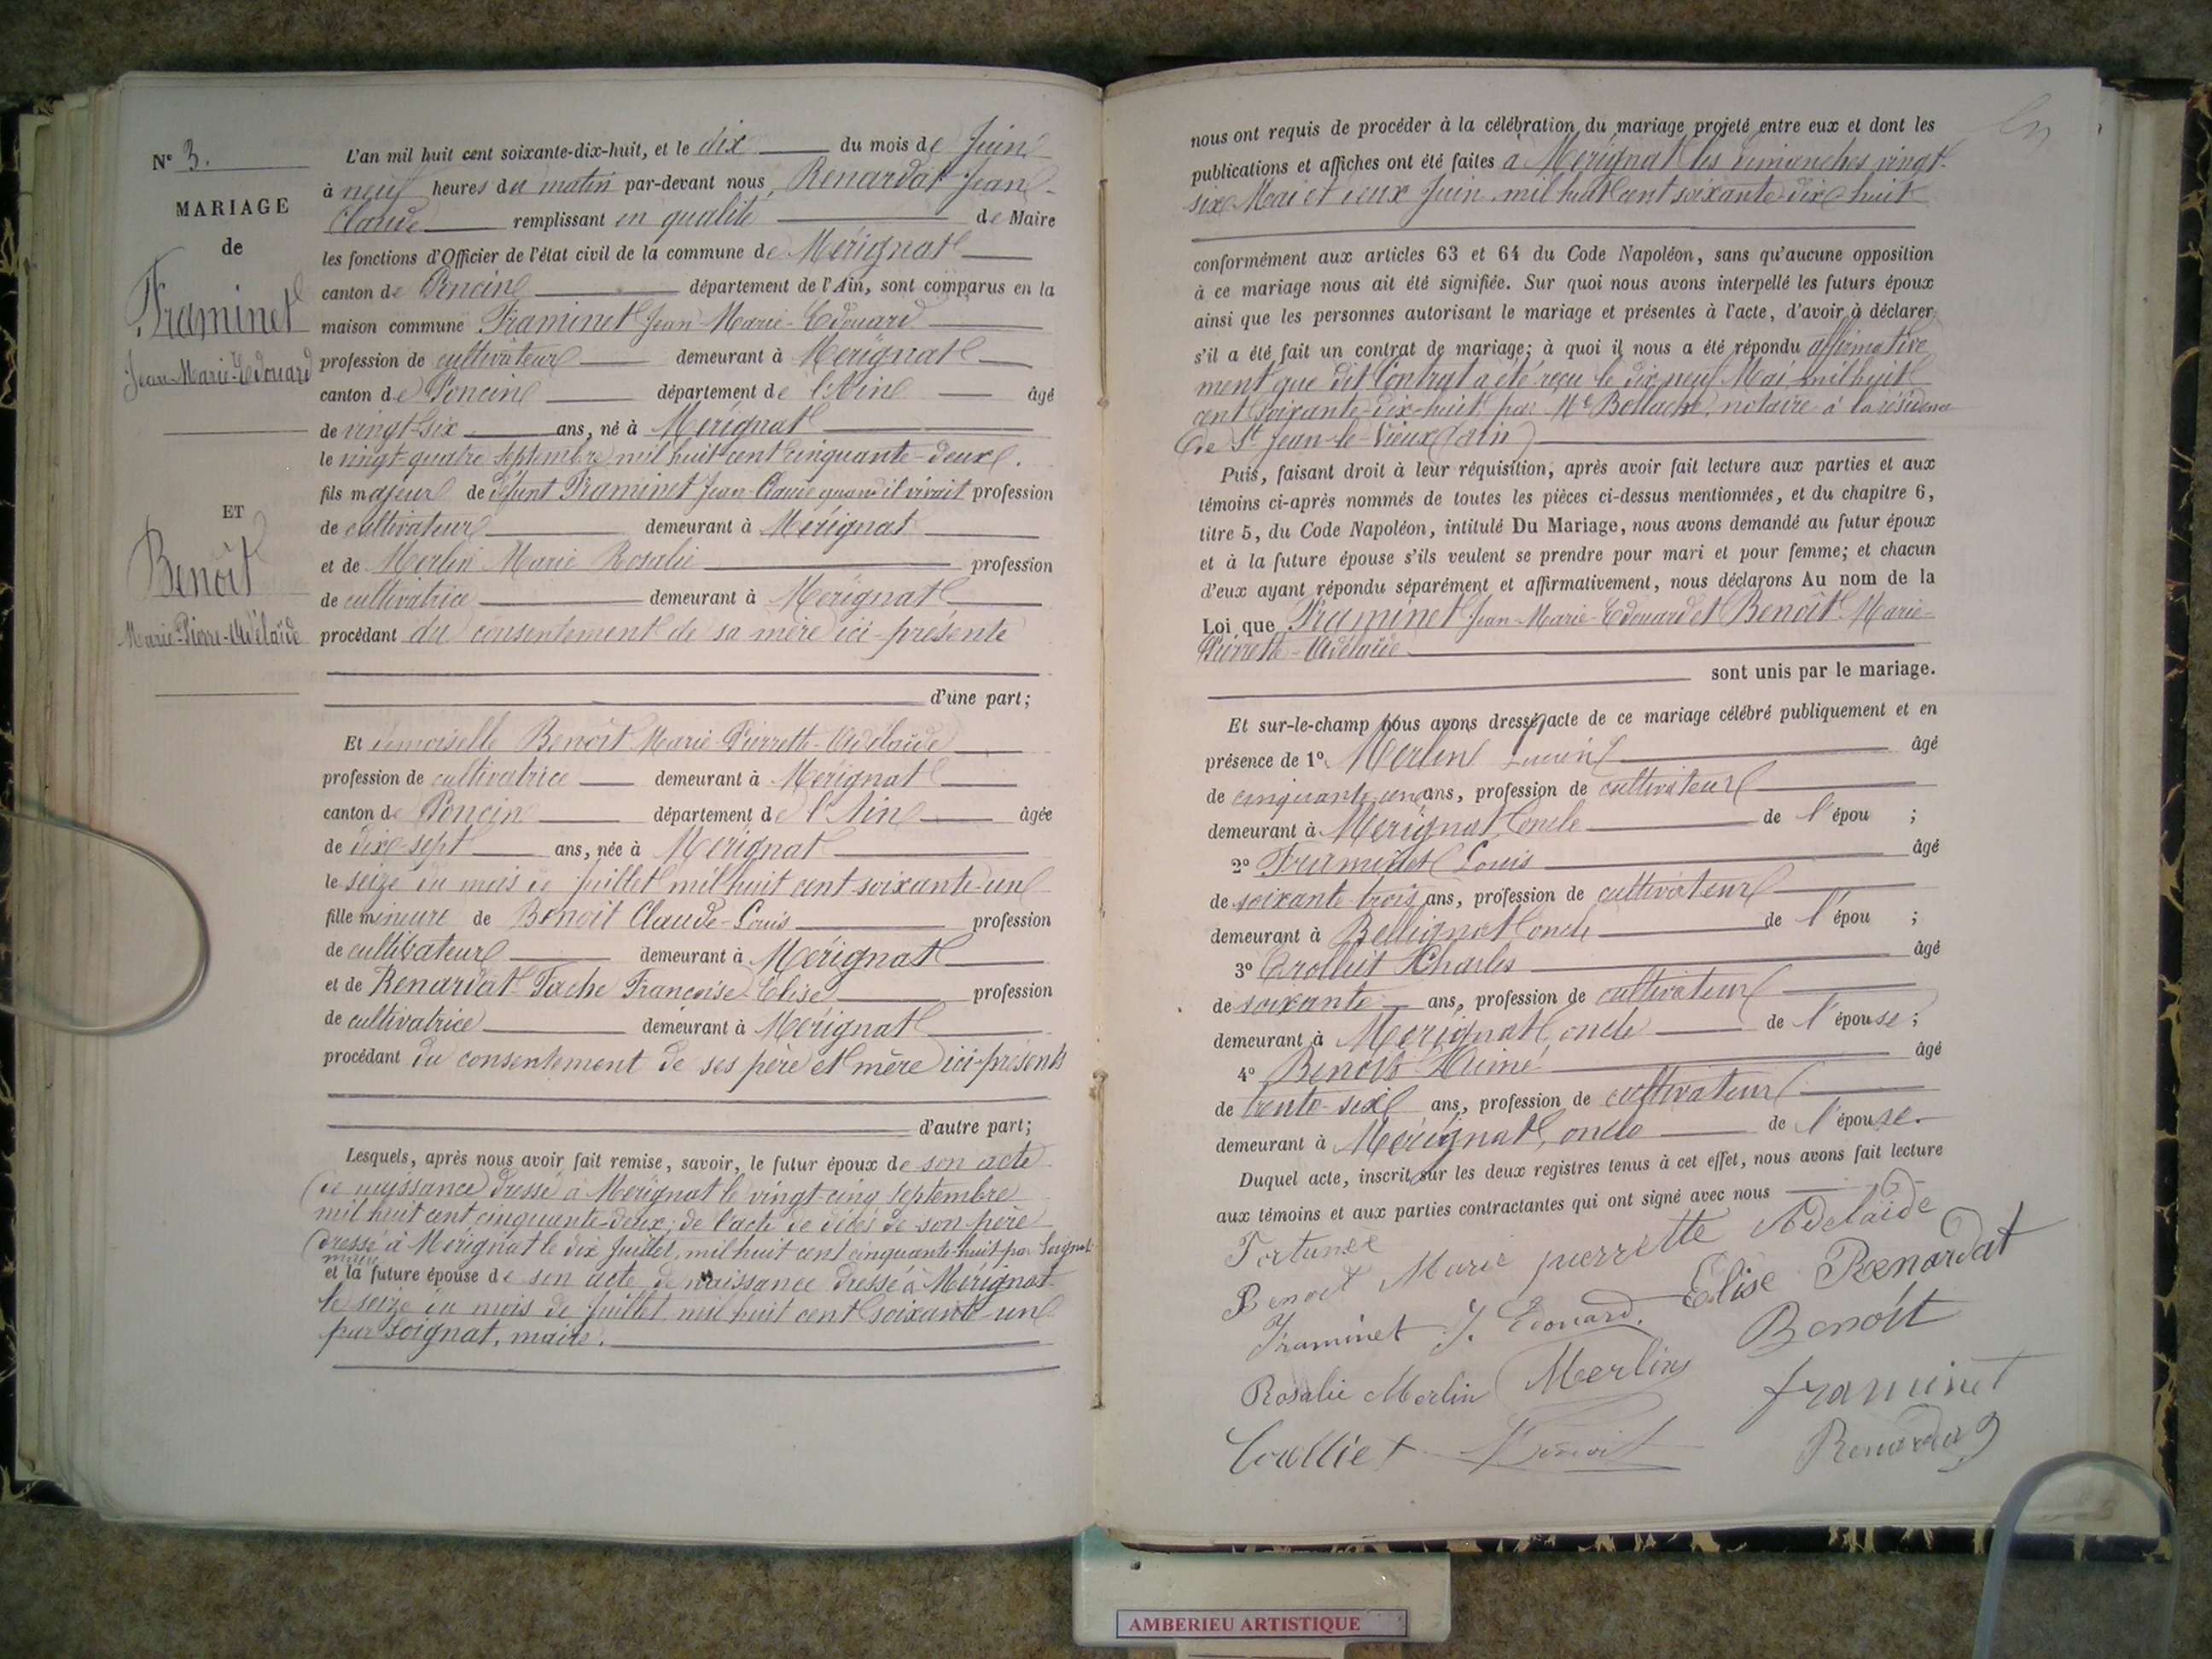 N° 3.
MARIAGE
de
Framinet
Jean-Marie-Edouard
ET
Benoît
Marie-Pierre-Adélaïde
L'an mil huit cent soixante-dix-huit, et le dix du mois de Juin
à neuf heures du matin par-devant nous, Renardat Jean-
Claude remplissant en qualité de Maire
les fonctions d'Officier de l'état civil de la commune de Mérignat
canton de Poncin département de l'Ain, sont comparus en la
maison commune Framinet Jean-Marie-Edouard
profession de cultivateur demeurant à Mérignat
canton de Poncin département de l'Ain âgé
de vingt-six ans, né à Mérignat
le vingt-quatre Septembre mil huit cent cinquante-deux.
fils majeur de défunt Framinet Jean-Claude quand il vivait profession
de cultivateur demeurant à Mérignat
et de Merlin Marie Rosalie profession
de cultivatrice demeurant à Mérignat
procédant du consentement de sa mère ici-présente
d'une part;
Et demoiselle Benoît Marie-Pierrette-Adélaïde
profession de cultivatrice demeurant à Mérignat
canton de Poncin département de l'Ain âgée
de dix-sept ans, née à Mérignat
le seize du mois de Juillet mil huit cent soixante-un
fille mineure de Benoit Claude-Louis profession
de cultivateur demeurant à Mérignat
et de Renardat-Fache Françoise Elise profession
de cultivatrice demeurant à Mérignat
procédant du consentement de ses père et mère ici-présents
d'autre part;
Lesquels, après nous avoir fait remise, savoir, le futur époux de son acte
de naissance dressé à Mérignat le vingt-cinq Septembre
mil huit cent cinquante-deux; de l'acte de décès de son père
dressé à Mérignat le dix Juillet, mil huit cent cinquante-huit par Soignat
maire
et la future épouse de son acte de naissance dressé à Mérignat
le seize du mois de Juillet mil huit cent soixante-un
par Soignat, maire.
nous ont requis de procéder à la célébration du mariage projeté entre eux et dont les
publications et affiches ont été faites à Mérignat les dimanches vingt-
six Mai et deux Juin mil huit cent soixante-dix-huit
conformément aux articles 63 et 64 du Code Napoléon, sans qu'aucune opposition
à ce mariage nous ait été signifiée. Sur quoi nous avons interpellé les futurs époux
ainsi que les personnes autorisant le mariage et présentes à l'acte, d'avoir à déclarer
s'il a été fait un contrat de mariage; à quoi il nous a été répondu affirmative
ment que dit Contrat a été reçu le dix neuf Mai mil huit
cent soixante-dix-huit par Me notaire à la résidence
de St Jean-le-Vieux (Ain)
Puis, faisant droit à leur réquisition, après avoir fait lecture aux parties et aux
témoins ci-après nommés de toutes les pièces ci-dessus mentionnées, et du chapitre 6,
titre 5, du Code Napoléon, intitulé Du Mariage, nous avons demandé au futur époux
et à la future épouse s'ils veulent se prendre pour mari et pour femme; et chacun
d'eux ayant répondu séparément et affirmativement, nous déclarons Au nom de la
Loi que Framinet Jean-Marie-Edouard et Benoît Marie-
Pierrette-Adélaïde
sont unis par le mariage.
Et sur-le-champ nous avons dressé acte de ce mariage célébré publiquement et en
présence de 1° Merlin âgé
de cinquante un ans, profession de cultivateur
demeurant à Mérignat, oncle de l'épou ;
2° Framinet Louis âgé
de soixante trois ans, profession de cultivateur
demeurant à Bellignat oncle de l'épou ;
3° Charles âgé
de soixante ans, profession de cultivateur
demeurant à Mérignat, oncle de l'épouse;
4° Benoit Aimé âgé
de trente-six ans, profession de cultivateur
demeurant à Mérignat, oncle de l'épouse.
Duquel acte, inscrit sur les deux registres tenus à cet effet, nous avons fait lecture
aux témoins et aux parties contractantes qui ont signé avec nous
Benoit Marie pierrette Adelaïde
Framinet J. Edouard. Elise Renardat
Rosalie Merlin Merlin Benoît
framinet
Benoit Renardat
AMBERIEU ARTISTIQUE